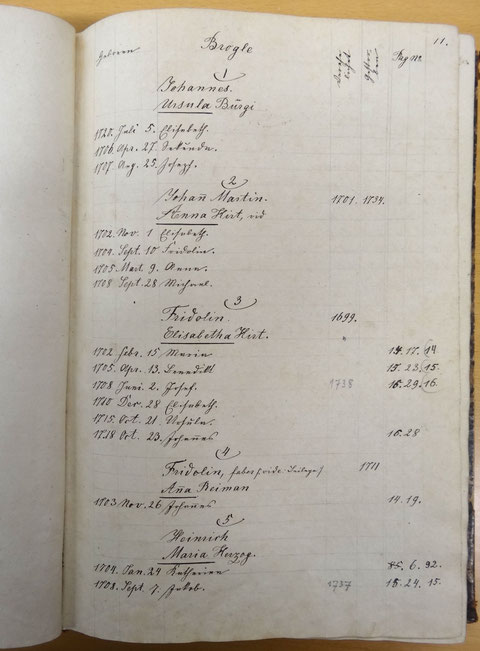 11.
Geboren Brogle Verehe-lichet. Gestor-ben Pag no.
1
Johannes.
Ursula Bürgi
1720. Juli 5. Elisabeth.
1706. Apr. 27. Sekunda.
1707. Aug. 25. Joseph.
2
Johañ Martin. 1701. 1734.
Anna Hirt, vid
1702. Nov. 1 Elisabeth.
1704. Sept. 10 Fridolin.
1705. Mart. 9. Anna.
1708 Sept. 28 Michael.
3
Fridolin. 1699.
Elisabetha Hirt.
1702. Febr. 15 Maria 14. 17. 14
1705. Apr. 13. Benedikt 15. 23. 15.
1708 Juni. 2. Josef. 1738 16. 29. 16.
1710 Dec. 28 Elisabeth.
1715. Oct. 21 Ursula.
1718 Oct. 23. Johannes 16. 28
4
Fridolin, faber 1711
Aña Reiman
1703. Nov. 26 Johannes 14. 19.
5
Heinrich
Maria Herzog.
1704. Jan. 24 Katharina 85. 6. 92.
1708. Sept. 1. Jakob. 1737 15. 24. 15.